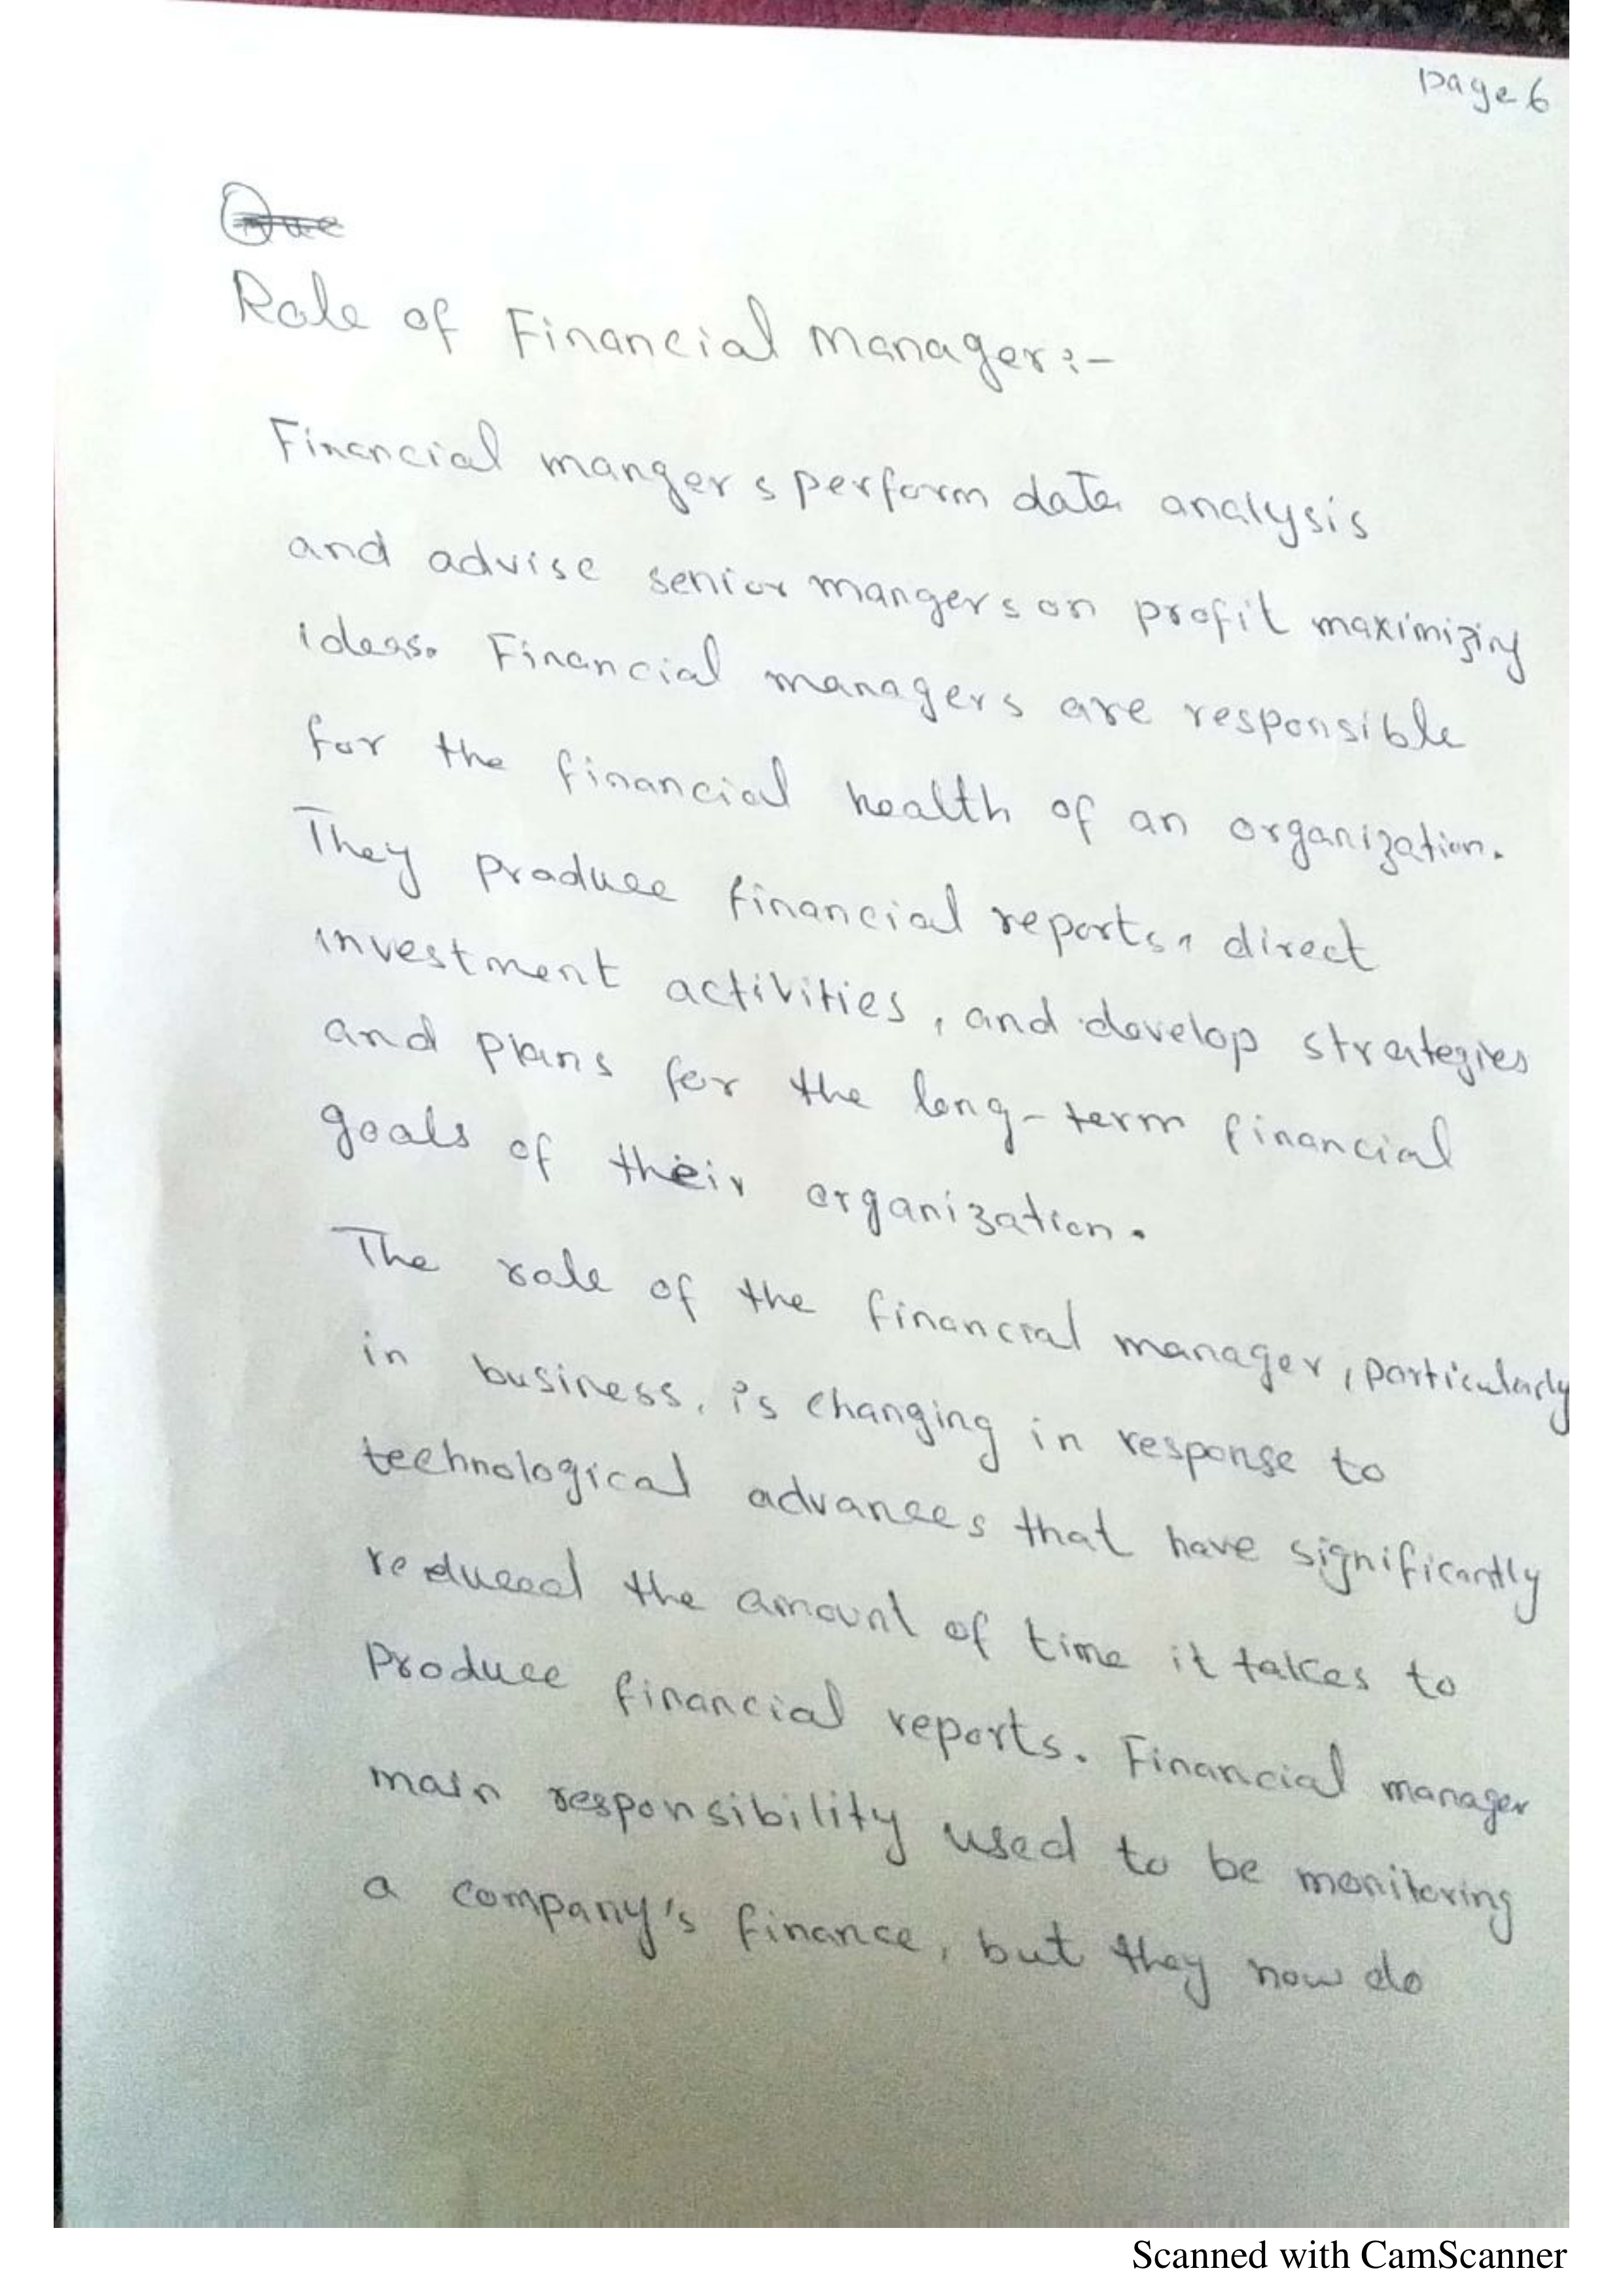 page 6
Que
Role of Financial Manager:-
Financial mangers perform data analysis
and advise senior mangers on profit maximizing
ideas. Financial managers are responsible
for the financial health of an organization.
They produce financial reports, direct
investment activities, and develop strategies
and plans for the long-term financial
goals of their organization.
The role of the financial manager, particularly
in business, is changing in response to
technological advances that have significantly
reduced the amount of time it takes to
produce financial reports. Financial manager
main responsibility used to be monitoring
a company's finance, but they now do
Scanned with CamScanner